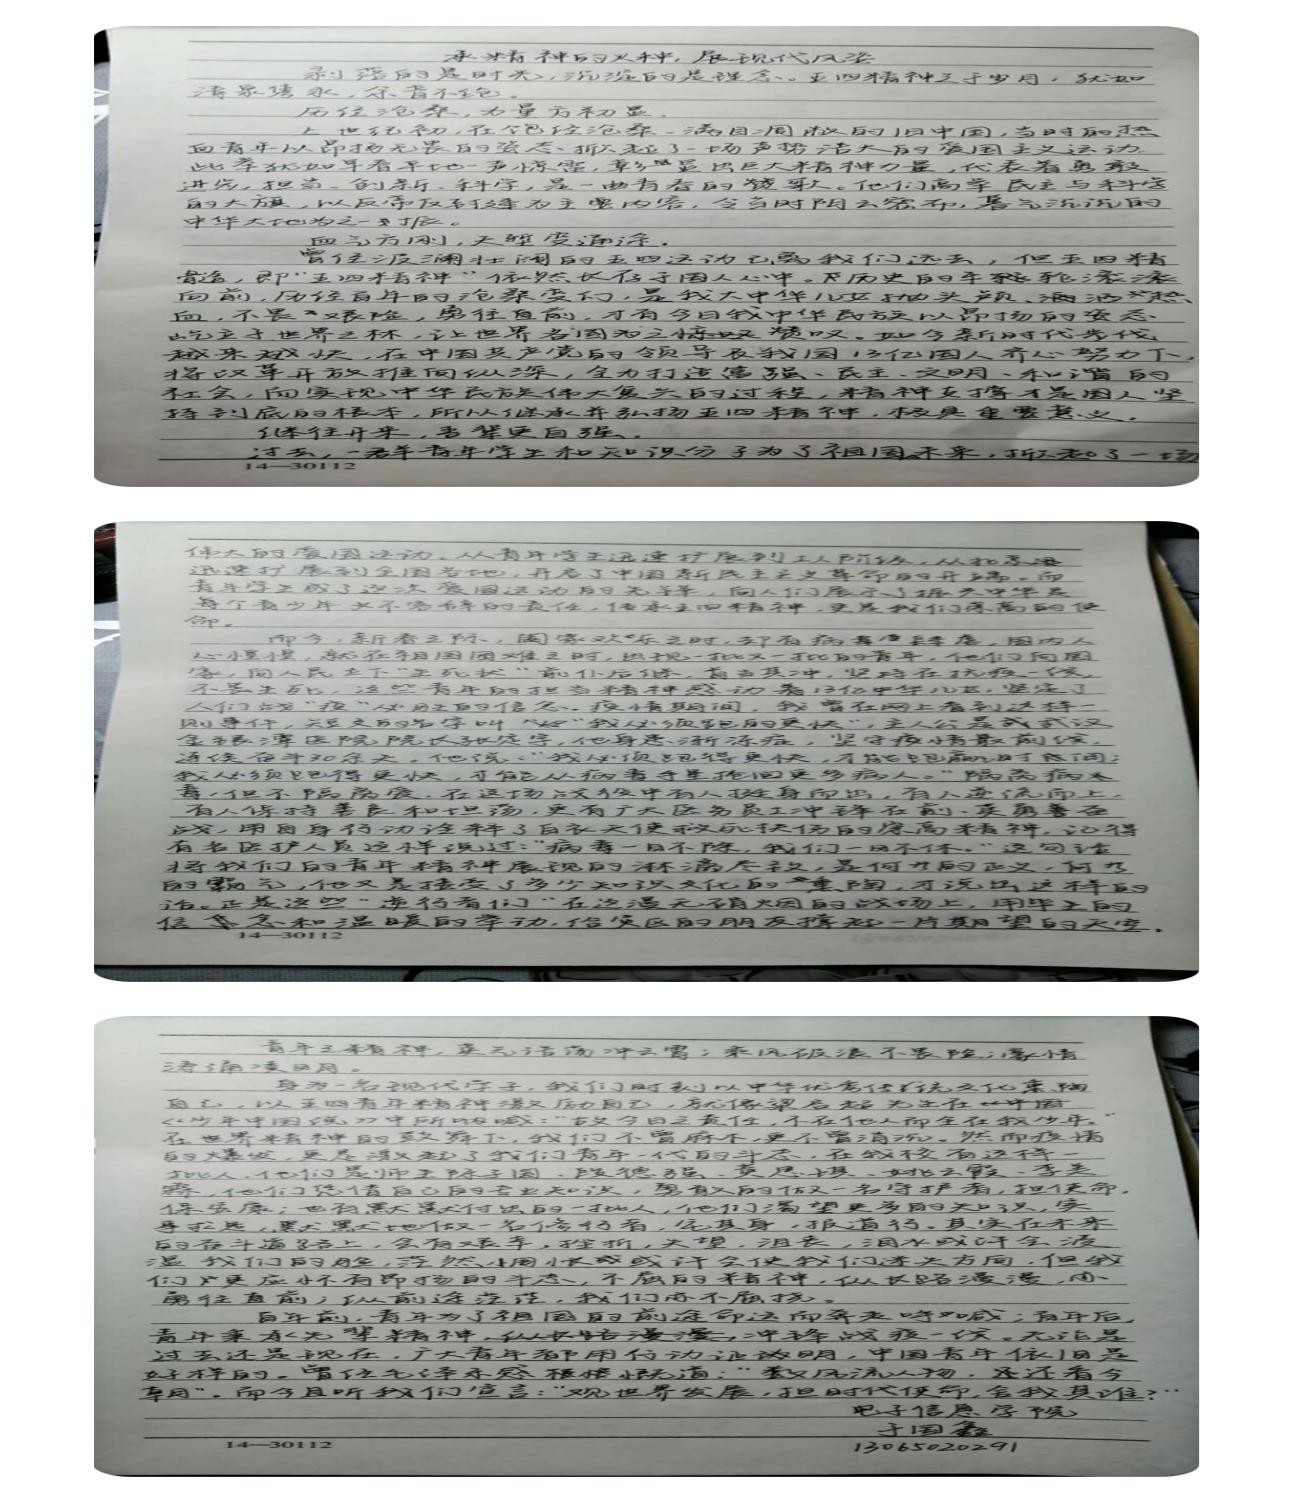 承精神的火种，展现代风姿
剥落的是时光，沉淀的是理念。五四精神之于岁月，犹如
清泉隽永，余音不绝。
历经沧桑，力量方初显。
上世纪初，在饱经沧桑、满目凋敝的旧中国，当时的热
血青年以昂扬无畏的姿态，掀起了一场声势浩大的爱国主义运动。
此举犹如旱春旱地一声惊雷，彰显出巨大精神力量，代表着勇敢
进步，担当、创新、科学，是一曲青春的赞歌。他们高举民主与科学
的大旗，以反帝反封建为主要内容，令当时阴云密布，暮气沉沉的
中华大地为之一振。
血气方刚，天堑变通途。
曾经波澜壮阔的五四运动已离我们远去，但五四精
髓，即“五四精神”依然长存于国人心中。历史的车轮滚滚
向前，历经百年的沧桑变幻，是我大中华儿女抛头颅、洒热
血，不畏艰险，勇往直前，才有今日我中华民族以昂扬的姿态
屹立于世界之林，让世界各国为之惊叹赞叹。如今新时代步伐
越来越快，在中国共产党的领导及我国13亿国人齐心努力下，
将改革开放推向纵深，全力打造富强、民主、文明、和谐的
社会，向实现中华民族伟大复兴的过程，精神支撑才是国人坚
持到底的根本，所以继承并弘扬五四精神，极具重要意义。
继往开来，吾辈更自强。
过去，一群青年学生和知识分子为了祖国未来，掀起了一场
14—30112
伟大的爱国运动。从青年学生迅速扩展到工人阶级，从北京迅
迅速扩展到全国各地，开启了中国新民主主义革命的开端。而
青年学生成了这次爱国运动的先锋，向人们展示了振兴中华是
每个青少年义不容辞的责任，传承五四精神，更是我们崇高的使
命。
而今，新春之际，阖家欢乐之时，却有病毒肆虐，国内人
心惶惶，就在祖国困难之时，出现一批又一批的青年，他们向国
家，向人民立下“生死状”前仆后继，首当其冲，坚持在抗疫一线，
不畏生死，这些青年的担当精神感动着13亿中华儿女，坚定了
人们战“疫”必胜的信念。疫情期间，我曾在网上看到这样一
则事件，短文的名字叫“我必须跑的更快”，主人公是武汉
金银潭医院院长张定宇，他身患渐冻症，坚守疫情最前线，
连续奋斗30余天。他说：“我必须跑得更快，才能跑赢时间；
我必须跑得更快，才能从病毒手里抢回更多病人。”隔离病
毒，但不隔离爱，在这场战役中有人挺身而出，有人逆流而上，
有人保持善良和坦荡，更有广大医务员工冲锋在前、英勇奋
战，用自身行动诠释了白衣天使救死扶伤的崇高精神，记得
有名医护人员这样说过：“病毒一日不除，我们一日不休。”这句话
将我们的青年精神展现的淋漓尽致，是何等的正义，何等
的霸气，他又是接受了多少知识文化的熏陶，才说出这样的
话。正是这些“逆行者们”在这漫无硝烟的战场上，用毕生的
信念和温暖的举动，给灾区的朋友撑起一片期望的天空。
14—30112
青年之精神，英气浩荡冲云霄；乘风破浪不畏险；豪情
涛涌凌日月。
身为一名现代学子，我们时刻以中华优秀传统文化熏陶
自己，以五四青年精神激励自己，就像梁启超先生在
《少年中国说》中所呐喊：“故今日之责任，不在他人而全在我少年。”
在世界精神的鼓舞下，我们不曾麻木，更不曾消沉。然而疫情
的爆发，更是激起了我们青年一代的斗志，在我校有这样一
批人，他们是师生陈子园、段德强、莫思琪、姚云霞、李
，他们凭借自己的专业知识，勇敢的做一名守护者，担使命，
保安康；也有默默付出的一批人，他们渴望更多的知识，实
事求是，默默地做一名修行者，宅其身，报道行。其实在未来
的奋斗道路上，会有艰辛，挫折，失望，沮丧，泪水或许会浸
湿我们的脸，茫然惆怅或许会使我们迷失方向，但我
们更应怀有昂扬的斗志，不屈的精神，纵长路漫漫，亦
勇往直前；纵前途茫茫，我们亦不屈挠。
百年前，青年为了祖国的前途命运而奔走呼喊；百年后，
青年秉承先辈精神，纵长路漫漫，冲锋战疫一线。无论是
过去还是现在，广大青年都用行动证明，中国青年依旧是
好样的。曾经毛泽东感慨道：“数风流人物，还看今
朝”。而今且听我们宣言：“观世界发展，担时代使命，舍我其谁？”
电子信息学院
于国鑫
13065020291